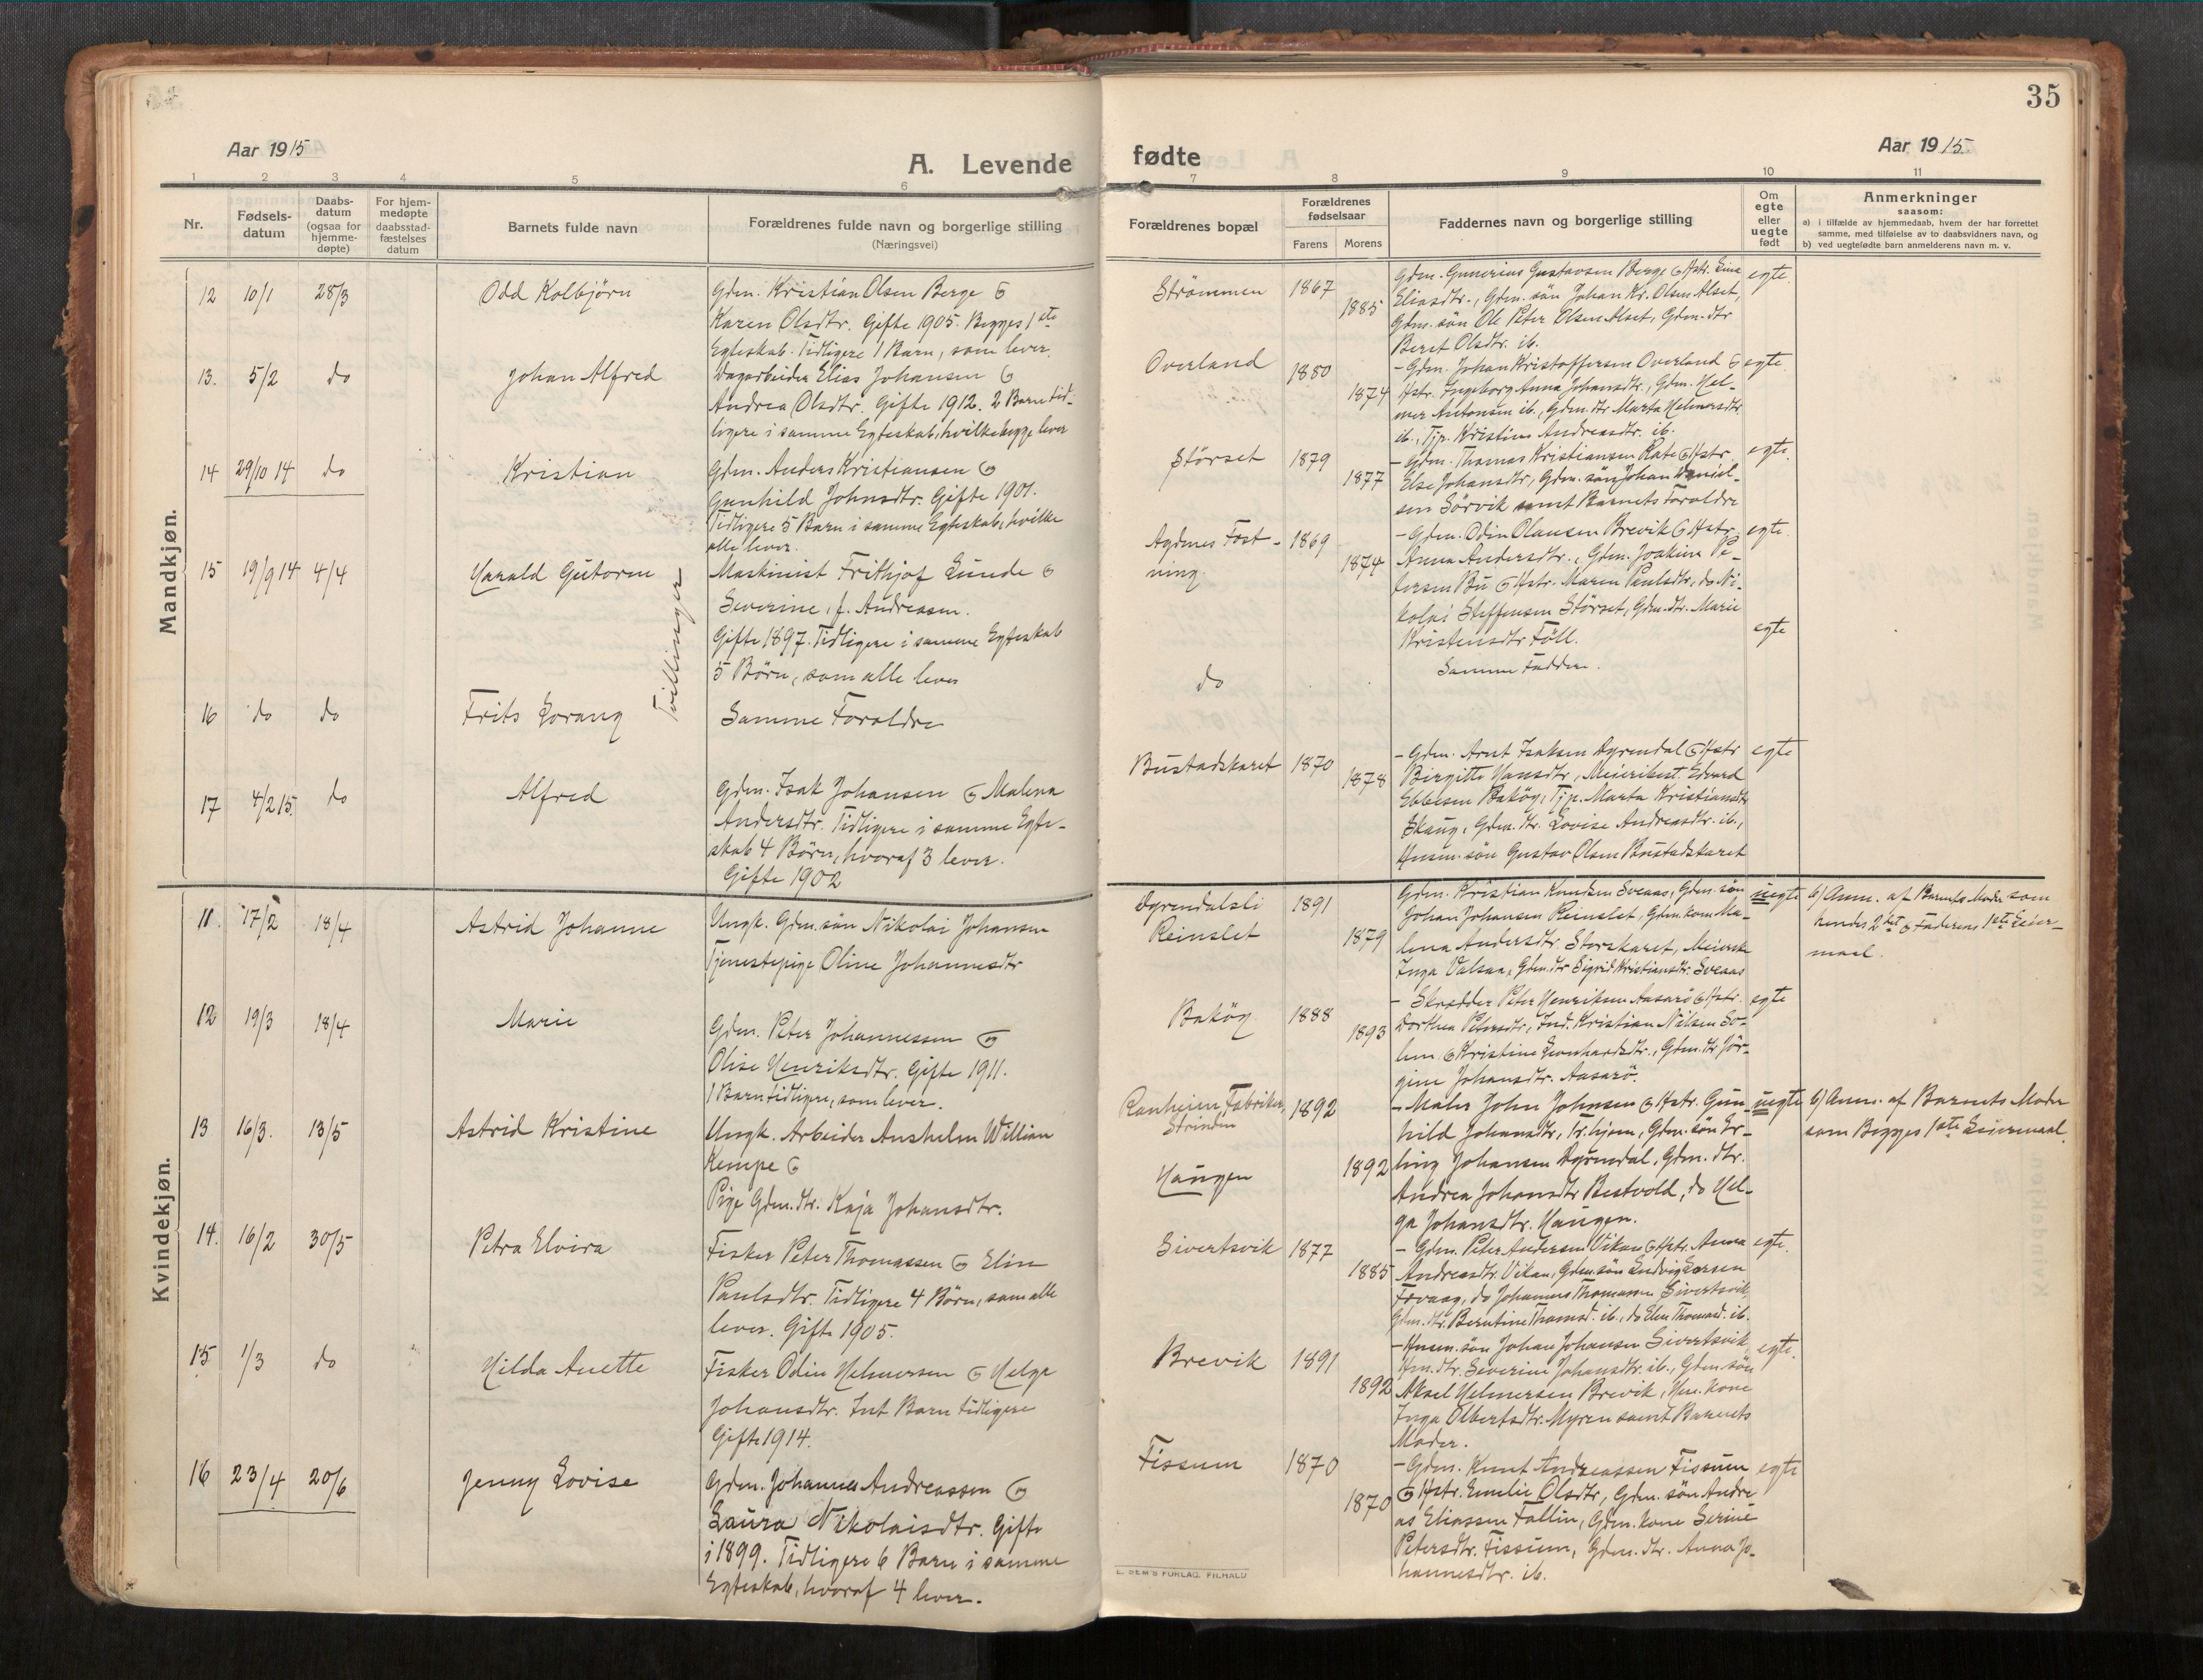 35
Aar 1915
A. Levende
fødte
Aar 1915
1 2 3 4 5 6 7 8 9 10 11
Nr.
Fødsels-
datum
Daabs-
datum
(ogsaa for
hjemme-
døpte)
For hjem-
medøpte
daabsstad-
fæstelses
datum
Barnets fulde navn
Forældrenes fulde navn og borgerlige stilling
(Næringsvei)
Forældrenes bopæl
Forældrenes
fødselsaar
Farens Morens
Faddernes navn og borgerlige stilling
Om
egte
eller
uegte
født
Anmerkninger
saasom:
a) i tilfælde av hjemmedaab, hvem der har forrettet
samme, med tilføielse av to daabsvidners navn, og
b) ved uegtefødte barn anmelderens navn m. v.
Mandkjøn.
12 10/1 28/3 Odd Kolbjörn
Gdm. Kristian Olsen Berge &
Karen Olsdtr. Gifte 1905. Begges 1ste
Egteskab. Tidligere 1 Barn, som lever.
Strömmen 1867 1885
Gdm. Gunerius Gustavsen Berge & Hstr. Lina
Eliasdtr., Gdm. sön Johan Kr. Olsen Alset,
Gdm. sön Ole Peter Olsen Alset, Gdm. dtr
Beret Olsdtr. ib.
egte.
13. 5/2 do Johan Alfred
Dagarbeider Elias Johansen &
Andrea Olsdtr. Gifte 1912. 2 Barn tid-
ligere i samme Egteskab, hvilke begge lever
Overland 1880 1874
- Gdm. Johan Kristoffersen Overland &
Hstr. Ingeborg Anna Johansdtr., Gdm. Hel-
mer Antonsen ib., Gdm. dtr Marta Helmersdtr
ib., Tjp. Kristine Andreasdtr. ib.
egte
14 29/10 14 do Kristian
Gdm. Anders Kristiansen &
Gunhild Johnsdtr. Gifte 1901.
Tidligere 5 Barn i samme Egteskab, hvilke
alle lever.
Störset 1879 1877
- Gdm. Thomas Kristiansen Rate & Hstr.
Else Johansdtr, Gdm. sön Johan Daniel-
sen Sörvik samt Barnets Foraldre
egte.
15 19/9 14 4/4 Harald Gütorm
Tvillinger
Maskinist Frithjof Lunde &
Severine, f. Andreasen.
Gifte 1897. Tidligere i samme Egteskab
5 Børn, som alle lever
Agdenes Fæst-
ning. 1869 1874
- Gdm. Odin Olausen Brevik & Hstr.
Anna Andersdtr., Gdm. Joakim Pe-
tersen Bu & Hstr. Maren Paulsdtr, do Ni-
kolai Steffensen Störset, Gdm. dtr. Marie
Kristensdtr Föll.
egte.
16 do do Frits Lorang
Samme Foraldre
do
Samme Faddere.
egte
17 4/2 15. do Alfred
Gdm. Isak Johansen & Malena
Andersdtr. Tidligere i samme Egte-
skab 4 Börn, hvoraf 3 lever.
Gifte 1902
Bustadskaret 1870 1878
- Gdm. Arnt Isaksen Dyrendal & Hstr
Birgitte Hansdtr, Meieribest. Edvard
Ebbesen Baköy, Tjp. Marta Kristiansdtr
Skaug, Gdm. dtr. Lovise Andreasdtr. ib.,
Husm. sön Gustav Olsen Bustadskaret
egte
Kvindekjøn.
11. 17/2 18/4 Astrid Johanne
Ungk. Gdm. sön Nikolai Johansen
Tjenestepige Oline Johannesdtr
Dyrendalsli
Reinslet 1891 1879
Gdm. Kristian Knudsen Sveaas, Gdm. sön
Johan Johansen Reinslet, Gdm. kone Ma-
lena Andersdtr. Storskaret, Meierske
Inga Valsaa, Gdm. dtr Sigrid Kristiansdtr. Sveaas
uegte
b) Anm. af Barnets Moder som
hendes 2det & Faderens 1ste Leier-
maal.
12 19/3 18/4 Marie
Gdm. Peter Johannessen &
Olise Henriksdtr. Gifte 1911.
1 Barn tidligere, som lever.
Baköy 1888 1893
- Skrædder Peter Henriksen Aasarö & Hstr.
Dorthea Petersdtr, Ind. Kristian Nilsen So-
lem & Kristine Leonhardsdtr., Gdm. dtr Jör-
gine Johansdtr. Aasarö.
egte
13 16/3. 13/5 Astrid Kristine
Ungk. Arbeider Anshelm Willian
Kempe &
Pige Gdm. dtr. Kaja Johansdtr.
Ranheim Fabriker,
Strinden
Haugen 1892 1892
- Maler John Johnsen & Hstr. Gun-
hild Johansdtr, Tr.hjem, Gdm. sön Er-
ling Johansen Dyrendal, Gdm. dtr.
Andrea Johansdtr Bestvold, do Hel-
ga Johansdtr. Haugen.
uegte
b) Anm. af Barnets Moder
som Begges 1ste Leiermaal.
14. 16/2 30/5 Petra Elvira
Fisker Peter Thomassen & Elen
Paulsdtr. Tidligere 4 Börn, som alle
lever. Gifte 1905.
Sivertsvik 1877 1885
- Gdm. Peter Andersen Vikan & Hstr. Anna
Andreasdtr. Vikan, Gdm. sön Ludvig Larsen
Fovaag, do Johannes Thomassen Sivertsvik,
Gdm. dtr. Berntine Thomasd. ib., do Elen Thomasd. ib.
egte.
15 1/3 do Hilda Anette
Fisker Odin Helmersen & Helge
Johansdtr. Int Barn tidligere
Gifte 1914.
Brevik 1891 1892
- Husm. sön Johan Johansen Sivertsvik
Hm. dtr. Severine Johansdtr. ib., Gdm. sön
Aksel Helmersen Brevik, Hm. kone
Inga Olbertsdtr. Myren samt Barnets
Moder.
egte.
16 23/4 20/6 Jenny Lovise
Gdm. Johannes Andreassen &
Laura Nikolaisdtr. Gifte
i 1899. Tidligere 6 Barn i samme
Egteskab, hvoraf 4 lever.
Fissum 1870 1870
- Gdm. Knut Andreassen Fissum
& Hstr. Emelie Olsdtr, Gdm. sön Andre
as Eliassen Fallin, Gdm. kone Serine
Petersdtr. Fissum, Gdm. dtr. Anna Jo-
hannesdtr. ib.
egte
E. SEM'S FORLAG, FR.HALD